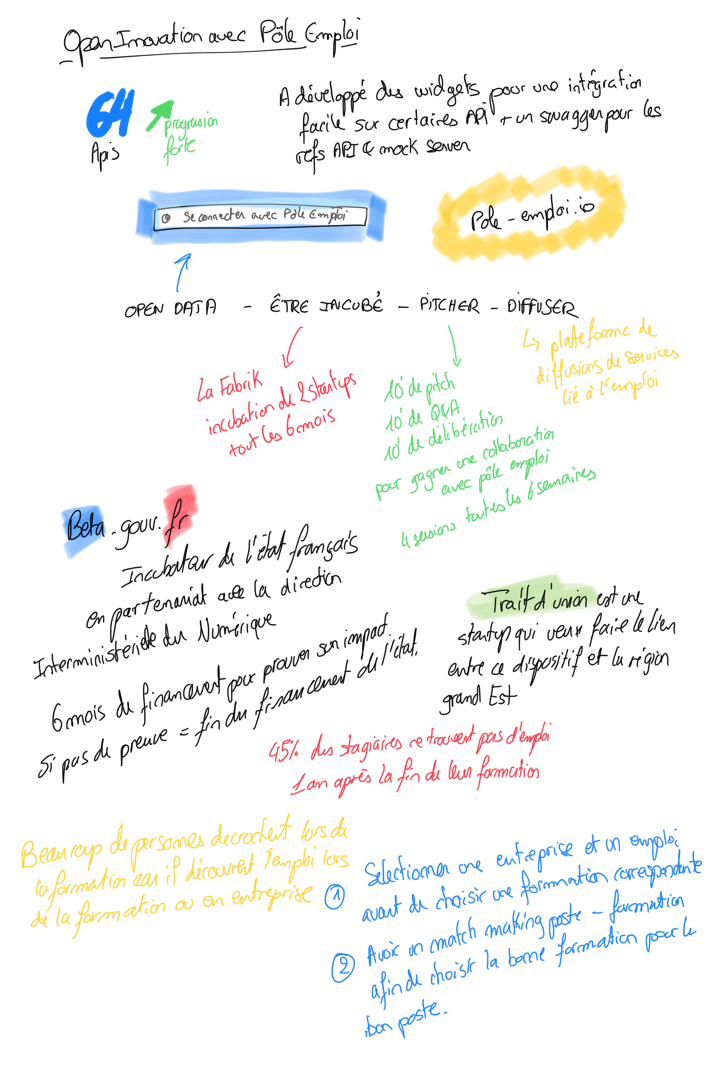 Open Innovation avec Pôle Emploi
64
Apis
progression
forte
A développé des widgets pour une intégration
facile sur certaines API + un swagger pour les
refs API & mock server
Se connecter avec Pôle Emploi
Pole-emploi.io
OPEN DATA - ÊTRE INCUBÉ - PITCHER - DIFFUSER
La Fabrik
incubation de 2 startups
tout les 6 mois
10' de pitch
10' de Q&A
10' de délibération
pour gagner une collaboration
avec pôle emploi
4 sessions toutes les 6 semaines
plateforme de
diffusions de services
lié à l'emploi
Beta.gouv.fr
Incubateur de l'état français
en partenariat avec la direction
Interministérielle du Numérique
6 mois de financement pour prouver son impact
Si pas de preuve = fin du financement de l'état.
Trait d'union est une
startup qui veux faire le lien
entre ce dispositif et la région
grand Est
45% des stagiaires ne trouvent pas d'emploi
1 an après la fin de leur formation
Beaucoup de personnes decrochent lors de
la formation car il découvrent l'emploi lors
de la formation ou en entreprise
① Selectionner une entreprise et un emploi
avant de choisir une formation correspondante
② Avoir un match making poste - formation
afin de choisir la bonne formation pour le
bon poste.